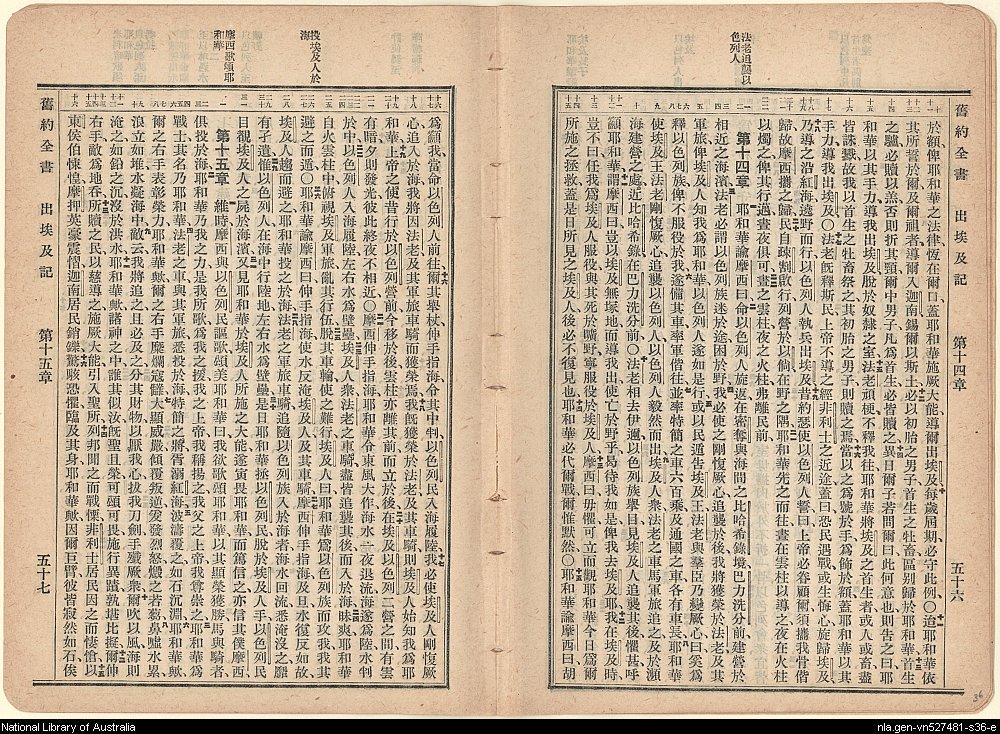 法老追襲以
色列人
舊約全書 出埃及記 第十四章 五十六
於額俾耶和華之法律恆在爾口蓋耶和華施厥大能導爾出埃及每歲屆期必守此例〇迨耶和華依
其所誓於爾及爾祖者導爾入迦南錫爾以斯土必以初胎之男子首生之牡畜區別歸於耶和華首生
之驢必贖以羔否則折其頸爾中男子凡為首生者必皆贖之異日爾子若問爾曰此何意也則告之曰耶
和華以其手力導我出埃及脫於奴隸之室法老頑梗不釋我往耶和華將埃及之首生者或人或畜盡
皆誅戮故我以首生之牡畜祭之其初胎之男子則贖之焉當以之為號於手為飾於額蓋耶和華以其
手力導我出埃及〇法老既釋斯民上帝不導之經非利士之近途蓋曰恐民遇戰或生悔心旋歸埃及
乃導之沿紅海邊野而行以色列人執兵出埃及昔約瑟使以色列人誓曰上帝必眷顧爾須攜我骨偕
歸故摩西攜之歸民自疎割啟行列營於以倘在野之隅耶和華先之而往晝在雲柱以導之夜在火柱
以燭之俾其行邁晝夜俱可晝之雲柱夜之火柱弗離民前
第十四章 耶和華諭摩西曰命以色列人旋返在密奪與海間之比哈希錄境巴力洗分前建營於
相近之海濱法老必謂以色列族迷於途困於野我必使之剛愎厥心追襲於後我將獲榮於法老及其
軍旅俾埃及人知我為耶和華以色列人遂如是行或以民遁告埃及王法老與羣臣乃變厥心曰奚為
釋以色列族俾不服役於我遂備其車率軍偕往並率特簡之車六百乘及通國之車各有車長耶和華
使埃及王法老剛愎厥心追襲以色列人以色列人毅然而出埃及人衆法老之車馬軍旅追之及於瀕
海建營之處近比哈希錄在巴力洗分前〇法老相去伊邇以色列族舉目見埃及人追襲其後懼甚呼
籲耶和華謂摩西曰豈以埃及無塚地而導我出使亡於野乎曷待我如是俾我去埃及耶我在埃及時
豈不曰任我為埃及人服役與其死於曠野寧服役於埃及人摩西曰毋懼可立而觀耶和華今日為爾
所施之拯救蓋是日所見之埃及人後必不復見也耶和華必代爾戰爾惟默然〇耶和華諭摩西曰胡
投埃及人於
海
摩西歌頌耶
和華
為籲我當命以色列人前往爾其舉杖伸手指海令其中判以色列民入海履陸我必使埃及人剛愎厥
心追入於海我將因法老及其軍旅車騎而獲榮焉我既獲榮於法老及其車騎則埃及人始知我為耶
和華上帝之使昔行於以色列營前今移於後雲柱亦離其前而立於後在埃及以色列二營之間有雲
有晦夕則發光彼此終夜不相近〇摩西伸手指海耶和華令東風大作海水一夜退流海遂為陸水判
於中以色列人入海履陸左右水為壁壘埃及人衆法老之車騎盡皆追襲其後而入於海昧爽耶和華
自火雲柱中俯視埃及軍旅亂其行伍脫其車輪使之難行埃及人曰耶和華為以色列族而攻我我其
避之而遁〇耶和華諭摩西曰伸手指海使水反淹埃及人及其車騎摩西伸手指海及旦水復反如故
埃及人趨而避之耶和華投之於海法老之軍旅車騎追隨以色列族入於海者海水回流悉淹沒之靡
有孑遺惟以色列人在海中行陸地左右水為壁壘是日耶和華拯以色列民脫於埃及人手以色列民
目覩埃及人之屍於海濱又見耶和華於埃及人所施之大能遂寅畏耶和華而篤信之亦信其僕摩西
第十五章 維時摩西與以色列民謳歌頌美耶和華曰我欲歌頌耶和華以其顯榮獲勝馬與騎者
俱投於海耶和華乃我之力是我所歌為我之援我之上帝我稱揚之我父之上帝我尊崇之耶和華
戰士其名乃耶和華法老之車與其軍旅悉投於海特簡之將胥溺紅海波濤覆之如石沉淵耶和華歟
爾之右手表彰榮力耶和華歟爾之右手糜爛寇讎大顯威嚴傾覆叛逆爰發烈怒燬之若芻鼻噓水累
浪立如堆水凝海中敵云我將追之且必及之分其財物以厭我心拔我刃劍手殲厥衆爾吹以風海則
淹之如鉛之沉沒於洪水耶和華歟諸神之中誰其似汝既聖且榮可頌可畏施行異蹟孰堪比擬爾伸
右手敵為地吞所贖之民以慈導之施厥大能引入聖所列邦聞之而戰慄非利士居民因之而悽愴以
東侯伯悚惶摩押英豪震慴迦南居民銷鑠驚駭恐懼臨及其身耶和華歟因爾巨臂彼皆寂然如石俟
舊約全書 出埃及記 第十五章 五十七
36
National Library of Australia
nla.gen-vn527481-s36-e